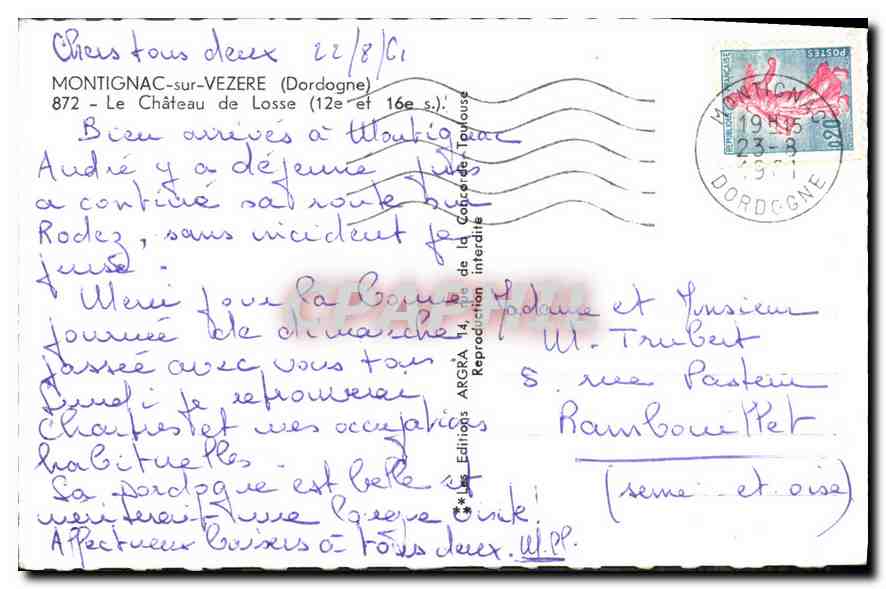 Chers tous deux 22/8/61
MONTIGNAC-sur-VEZERE (Dordogne)
872 - Le Château de Losse (12e et 16e s.).
Bien arrivés à Montignac
André y a déjeuné puis
a continué sa route sur
Rodez, sans incident je
pense.
Merci pour la bonne
journée de dimanche
passée avec vous tous.
Lundi je retrouverai
Chartres et mes occupations
habituelles.
La Dordogne est belle et
mériterait une longue visite!
Affectueux baisers à tous deux. M.PP.
**Les Editions ARGRA 14, rue de la Concorde-Toulouse
Reproduction interdite
REPUBLIQUE FRANÇAISE
POSTES
0,20
MONTIGNAC
19H15
23-8
1961
DORDOGNE
Madame et Monsieur
M. Trubert
5. rue Pasteur
Rambouillet
(Seine et oise)
CPAPHIL